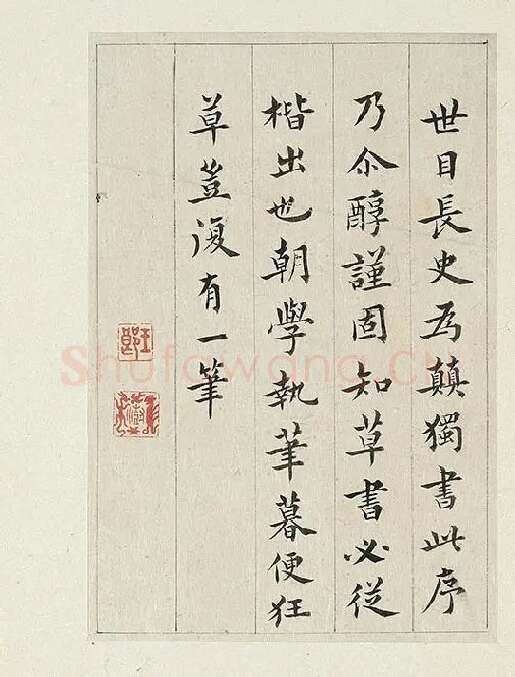 世目長史為顛獨書此序
乃尒醇謹固知草書必從
楷出也朝學執筆暮便狂
草豈復有一筆
Shufawang.CN